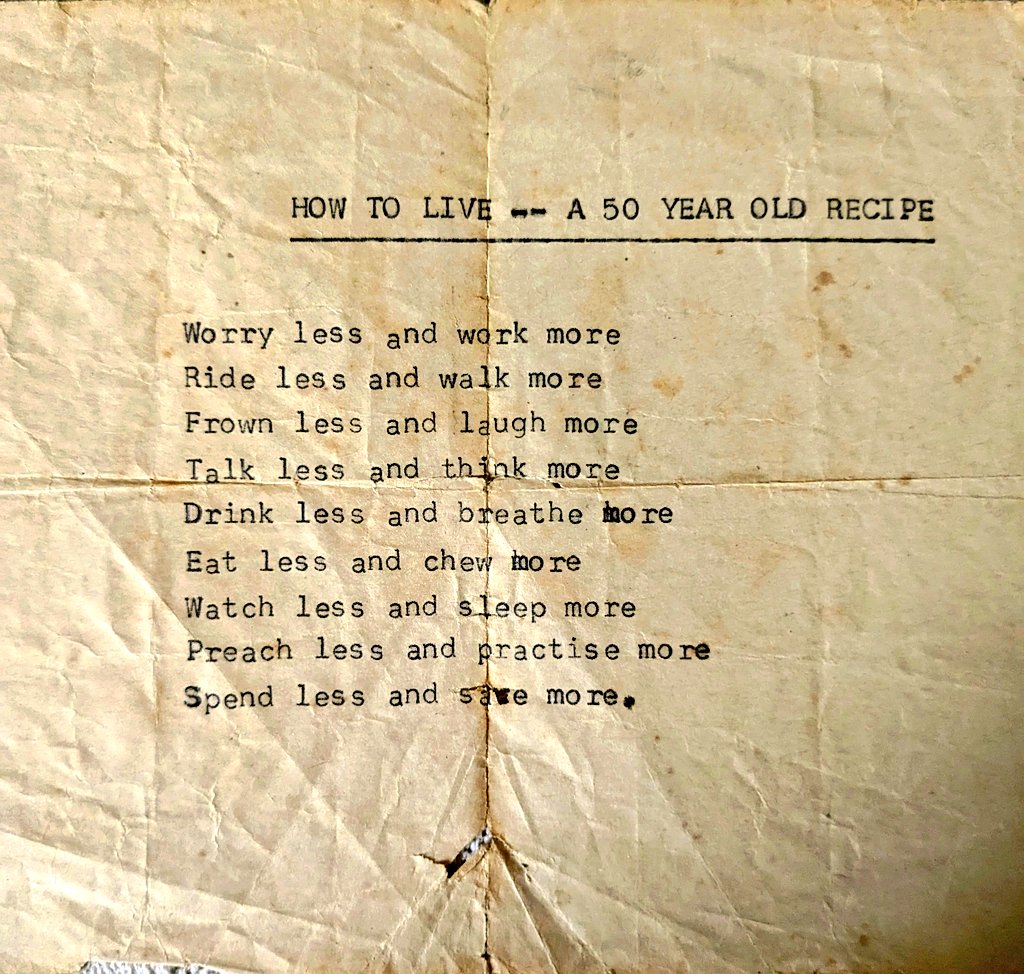 HOW TO LIVE -- A 50 YEAR OLD RECIPE
Worry less and work more
Ride less and walk more
Frown less and laugh more
Talk less and think more
Drink less and breathe more
Eat less and chew more
Watch less and sleep more
Preach less and practise more
Spend less and save more.